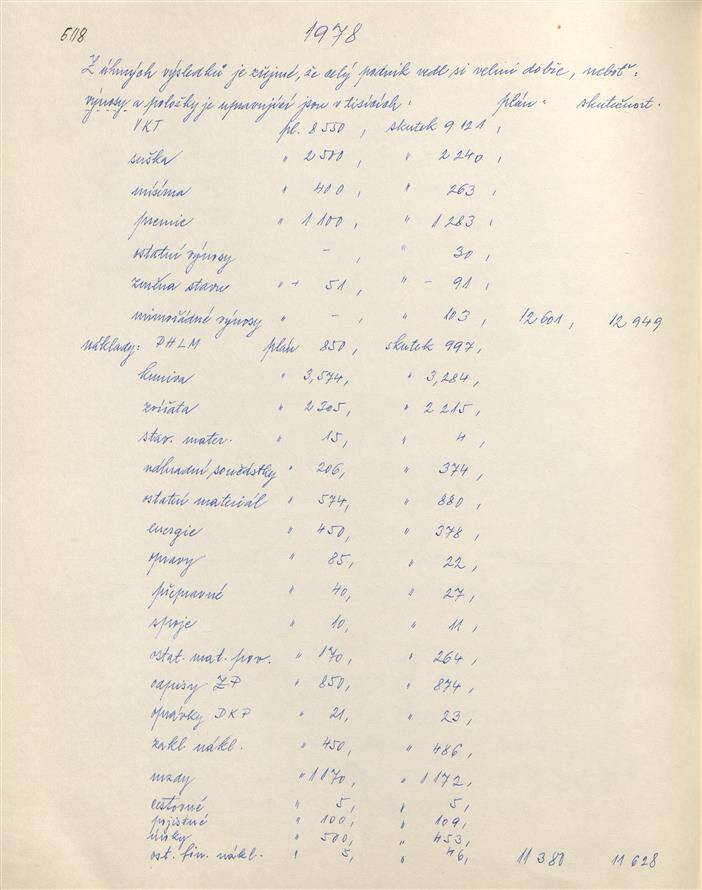 608 1978
Z úhrnných výsledků je zřejmé, že celý podnik vedl si velmi dobře, neboť:
výnosy a položky je upravující jsou v tisících: plán: skutečnost.
VKT pl. 8 550, skutek 9 121,
suška " 2 500, " 2 240,
mísíma " 400, " 263,
premie " 1 100, " 1 283,
ostatní výnosy – , " 30,
změna stavu " + 51, " – 91,
mimořádné výnosy " – , " 103, 12 601, 12 949
náklady: PHLM plán 850, skutek 997,
krmiva " 3,574, " 3,284,
zvířata " 2 305, " 2 215,
stav. mater. " 15, " 4,
náhradní součástky " 206, " 374,
ostatní materiál " 574, " 880,
energie " 450, " 378,
opravy " 85, " 22,
přepravné " 40, " 27,
spoje " 10, " 11,
ostat. mat. pov. " 170, " 264,
odpisy ZP " 850, " 874,
oprávky DKP " 21, " 23,
zákl. nákl. " 450, " 486,
mzdy " 1 170, " 1 172,
cestovné " 5, " 5,
pojistné " 100, " 109,
úroky " 500, " 453,
ost. fin. nákl. " 5, " 46, 11 380 11 628